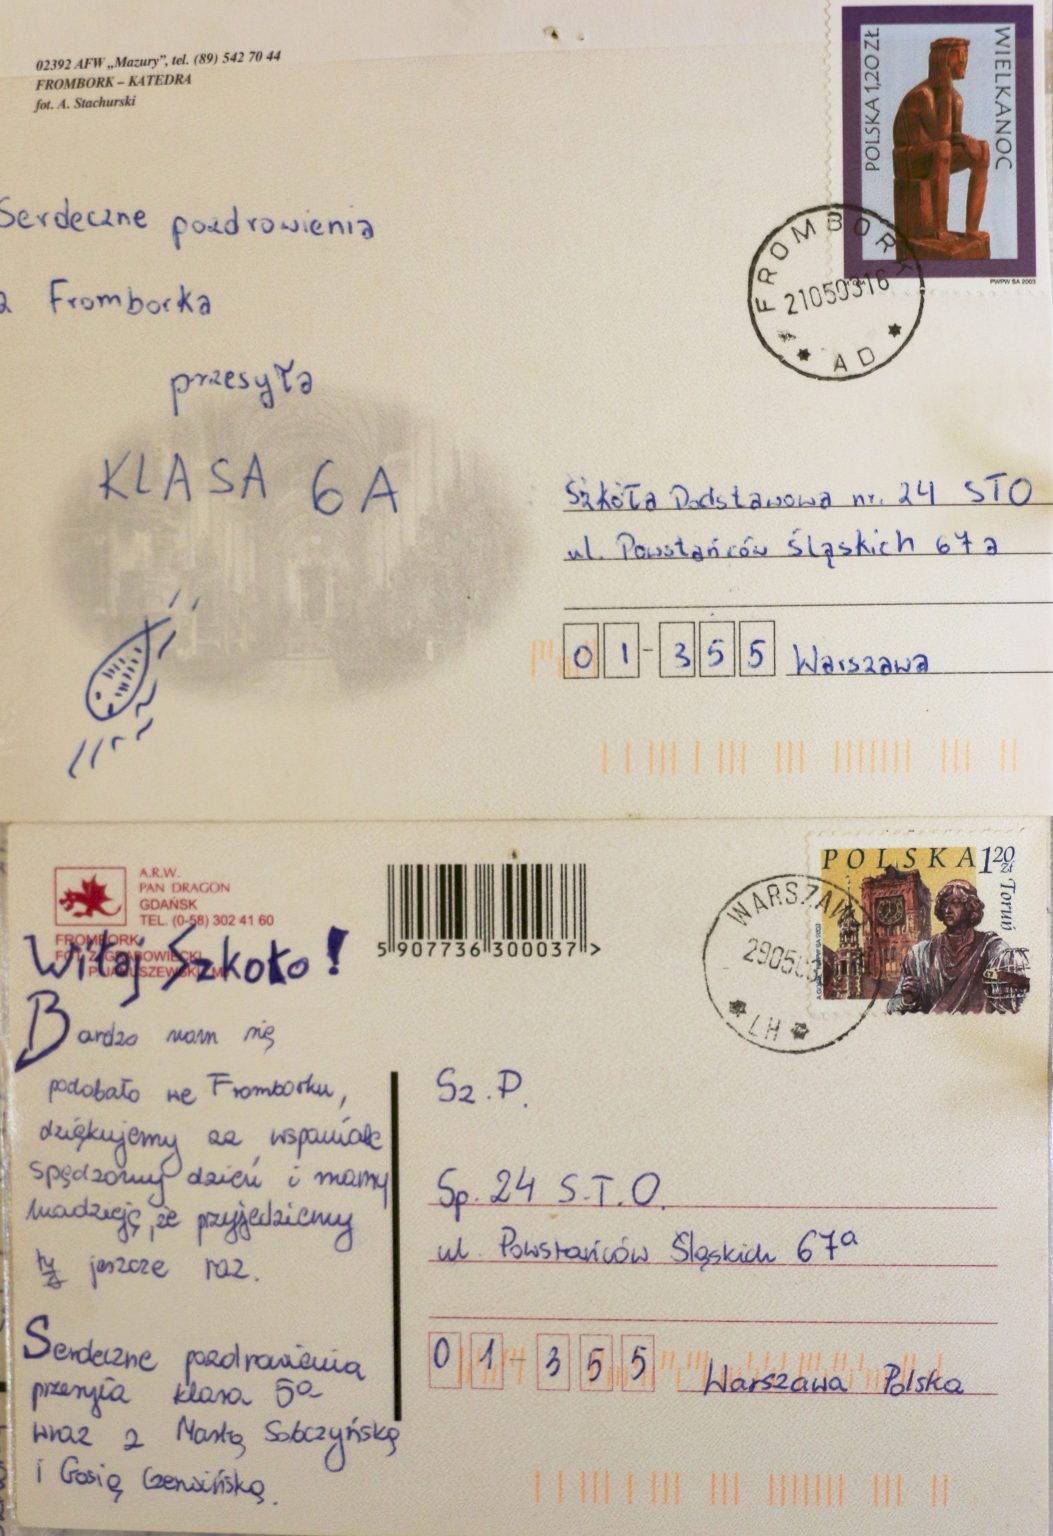 02392 AFW „Mazury”, tel. (89) 542 70 44
FROMBORK – KATEDRA
fot. A. Stachurski
POLSKA 1,20 ZŁ
WIELKANOC
PWPW SA 2003
FROMBORK
21050316
AD
Serdeczne pozdrowienia
z Fromborka
przesyła
KLASA 6A
Szkoła Podstawowa nr. 24 STO
ul. Powstańców Śląskich 67a
01-355 Warszawa
A.R.W.
PAN DRAGON
GDAŃSK
TEL. (0-58) 302 41 60
FROMBORK
5 907736 300037 >
POLSKA 120 zł
Toruń
WARSZAWA
290503
LH
Witaj Szkoło!
Bardzo nam się
podobało we Fromborku,
dziękujemy za wspaniale
spędzony dzień i mamy
nadzieję, że przyjedziemy
tu jeszcze raz.
Serdeczne pozdrowienia
przesyła klasa 5a
wraz z Martą Sobczyńską
i Gosią Czerwińską.
Sz. P.
Sp. 24 S.T.O.
ul. Powstańców Śląskich 67a
01-355 Warszawa Polska